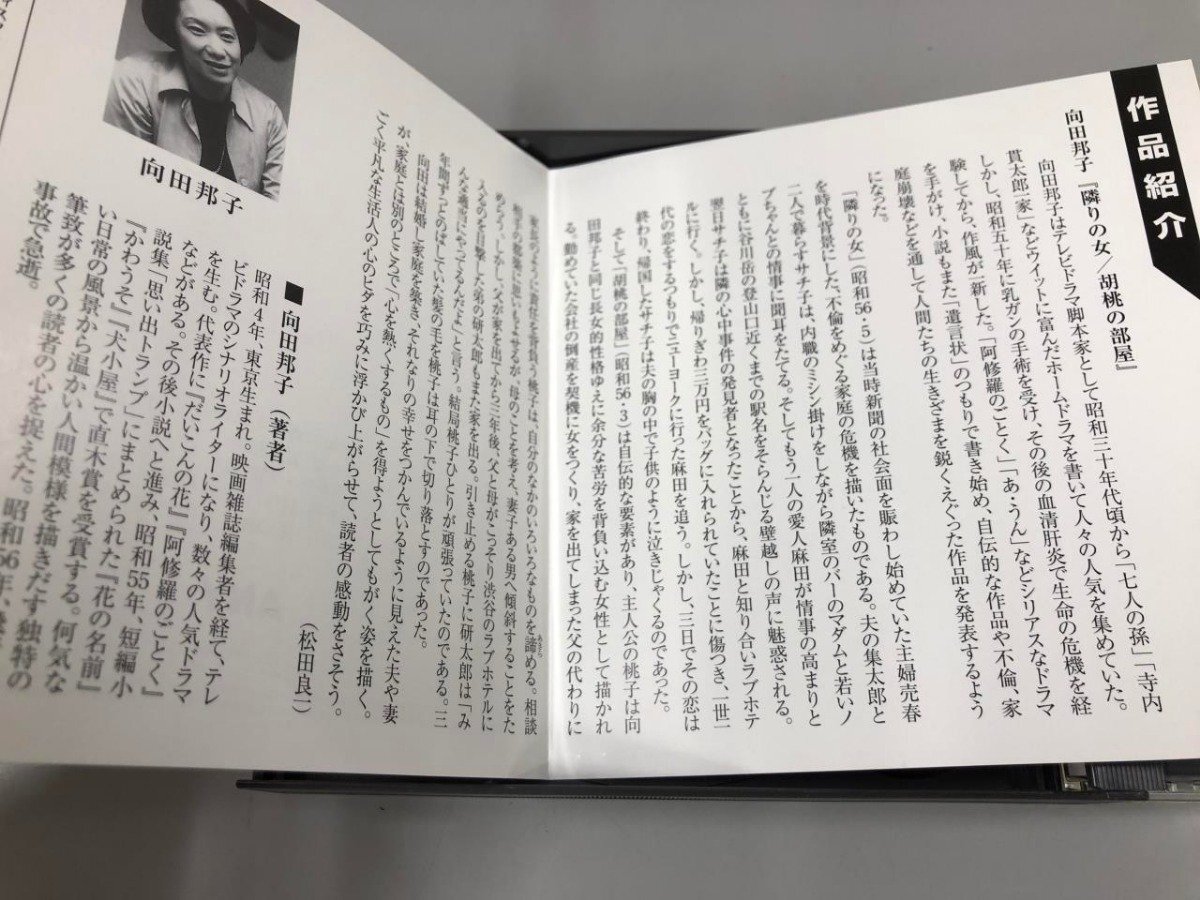 作品紹介
向田邦子『隣りの女/胡桃の部屋』
向田邦子はテレビドラマ脚本家として昭和三十年代頃から「七人の孫」「寺内
貫太郎一家」などウィットに富んだホームドラマを書いて人々の人気を集めていた。
しかし、昭和五十年に乳ガンの手術を受け、その後の血清肝炎で生命の危機を経
験してから、作風が一新した。「阿修羅のごとく」「あ・うん」などシリアスなドラマ
を手がけ、小説もまた「遺言状」のつもりで書き始め、自伝的な作品や不倫、家
庭崩壊などを通して人間たちの生きざまを鋭くえぐった作品を発表するよう
になった。
「隣りの女」(昭和56・5)は当時新聞の社会面を賑わし始めていた主婦売春
を時代背景にした、不倫をめぐる家庭の危機を描いたものである。夫の集太郎と
二人で暮らすサチ子は、内職のミシン掛けをしながら隣室のバーのマダムと若いノ
ブちゃんとの情事に聞耳をたてる。そしてもう一人の愛人麻田が情事の高まりと
ともに谷川岳の登山口近くまでの駅名をそらんじる壁越しの声に魅惑される。
翌日サチ子は隣の心中事件の発見者となったことから、麻田と知り合いラブホテ
ルに行く。しかし、帰りぎわ三万円をバッグに入れられていたことに傷つき、一世一
代の恋をするつもりでニューヨークに行った麻田を追う。しかし、三日でその恋は
終わり、帰国したサチ子は夫の胸の中で子供のように泣きじゃくるのであった。
そして「胡桃の部屋」(昭和56・3)は自伝的な要素があり、主人公の桃子は向
田邦子と同じ長女的性格ゆえに余分な苦労を背負い込む女性として描かれ
る。勤めていた会社の倒産を契機に女をつくり、家を出てしまった父の代わりに
家長のように責任を背負う桃子は、自分のなかのいろいろなものを諦める。相談
あきら
相手の都築に想いもよせるが、母のことを考え、妻子ある男へ傾斜することをた
めらう。しかし、父が家を出てから三年後、父と母がこっそり渋谷のラブホテルに
入るのを目撃した弟の研太郎もまた家を出る。引き止める桃子に研太郎は「み
んな適当にやってるんだよ」と言う。結局桃子ひとりが頑張っていたのである。三
年間ずっとのばしていた髪の毛を桃子は耳の下で切り落とすのであった。
向田は結婚し家庭を築き、それなりの幸せをつかんでいるように見えた夫や妻
が、家庭とは別のところで「心を熱くするもの」を得ようとしてもがく姿を描く。
ごく平凡な生活人の心のヒダを巧みに浮かび上がらせて、読者の感動をさそう。
(松田良一)
向田邦子
■向田邦子(著者)
昭和4年、東京生まれ。映画雑誌編集者を経て、テレ
ビドラマのシナリオライターになり、数々の人気ドラマ
を生む。代表作に『だいこんの花』『阿修羅のごとく』
などがある。その後小説へと進み、昭和55年、短編小
説集『思い出トランプ』にまとめられた『花の名前』
『かわうそ』『犬小屋』で直木賞を受賞する。何気な
い日常の風景から温かい人間模様を描きだす独特の
筆致が多くの読者の心を捉えた。昭和56年、
事故で急逝。